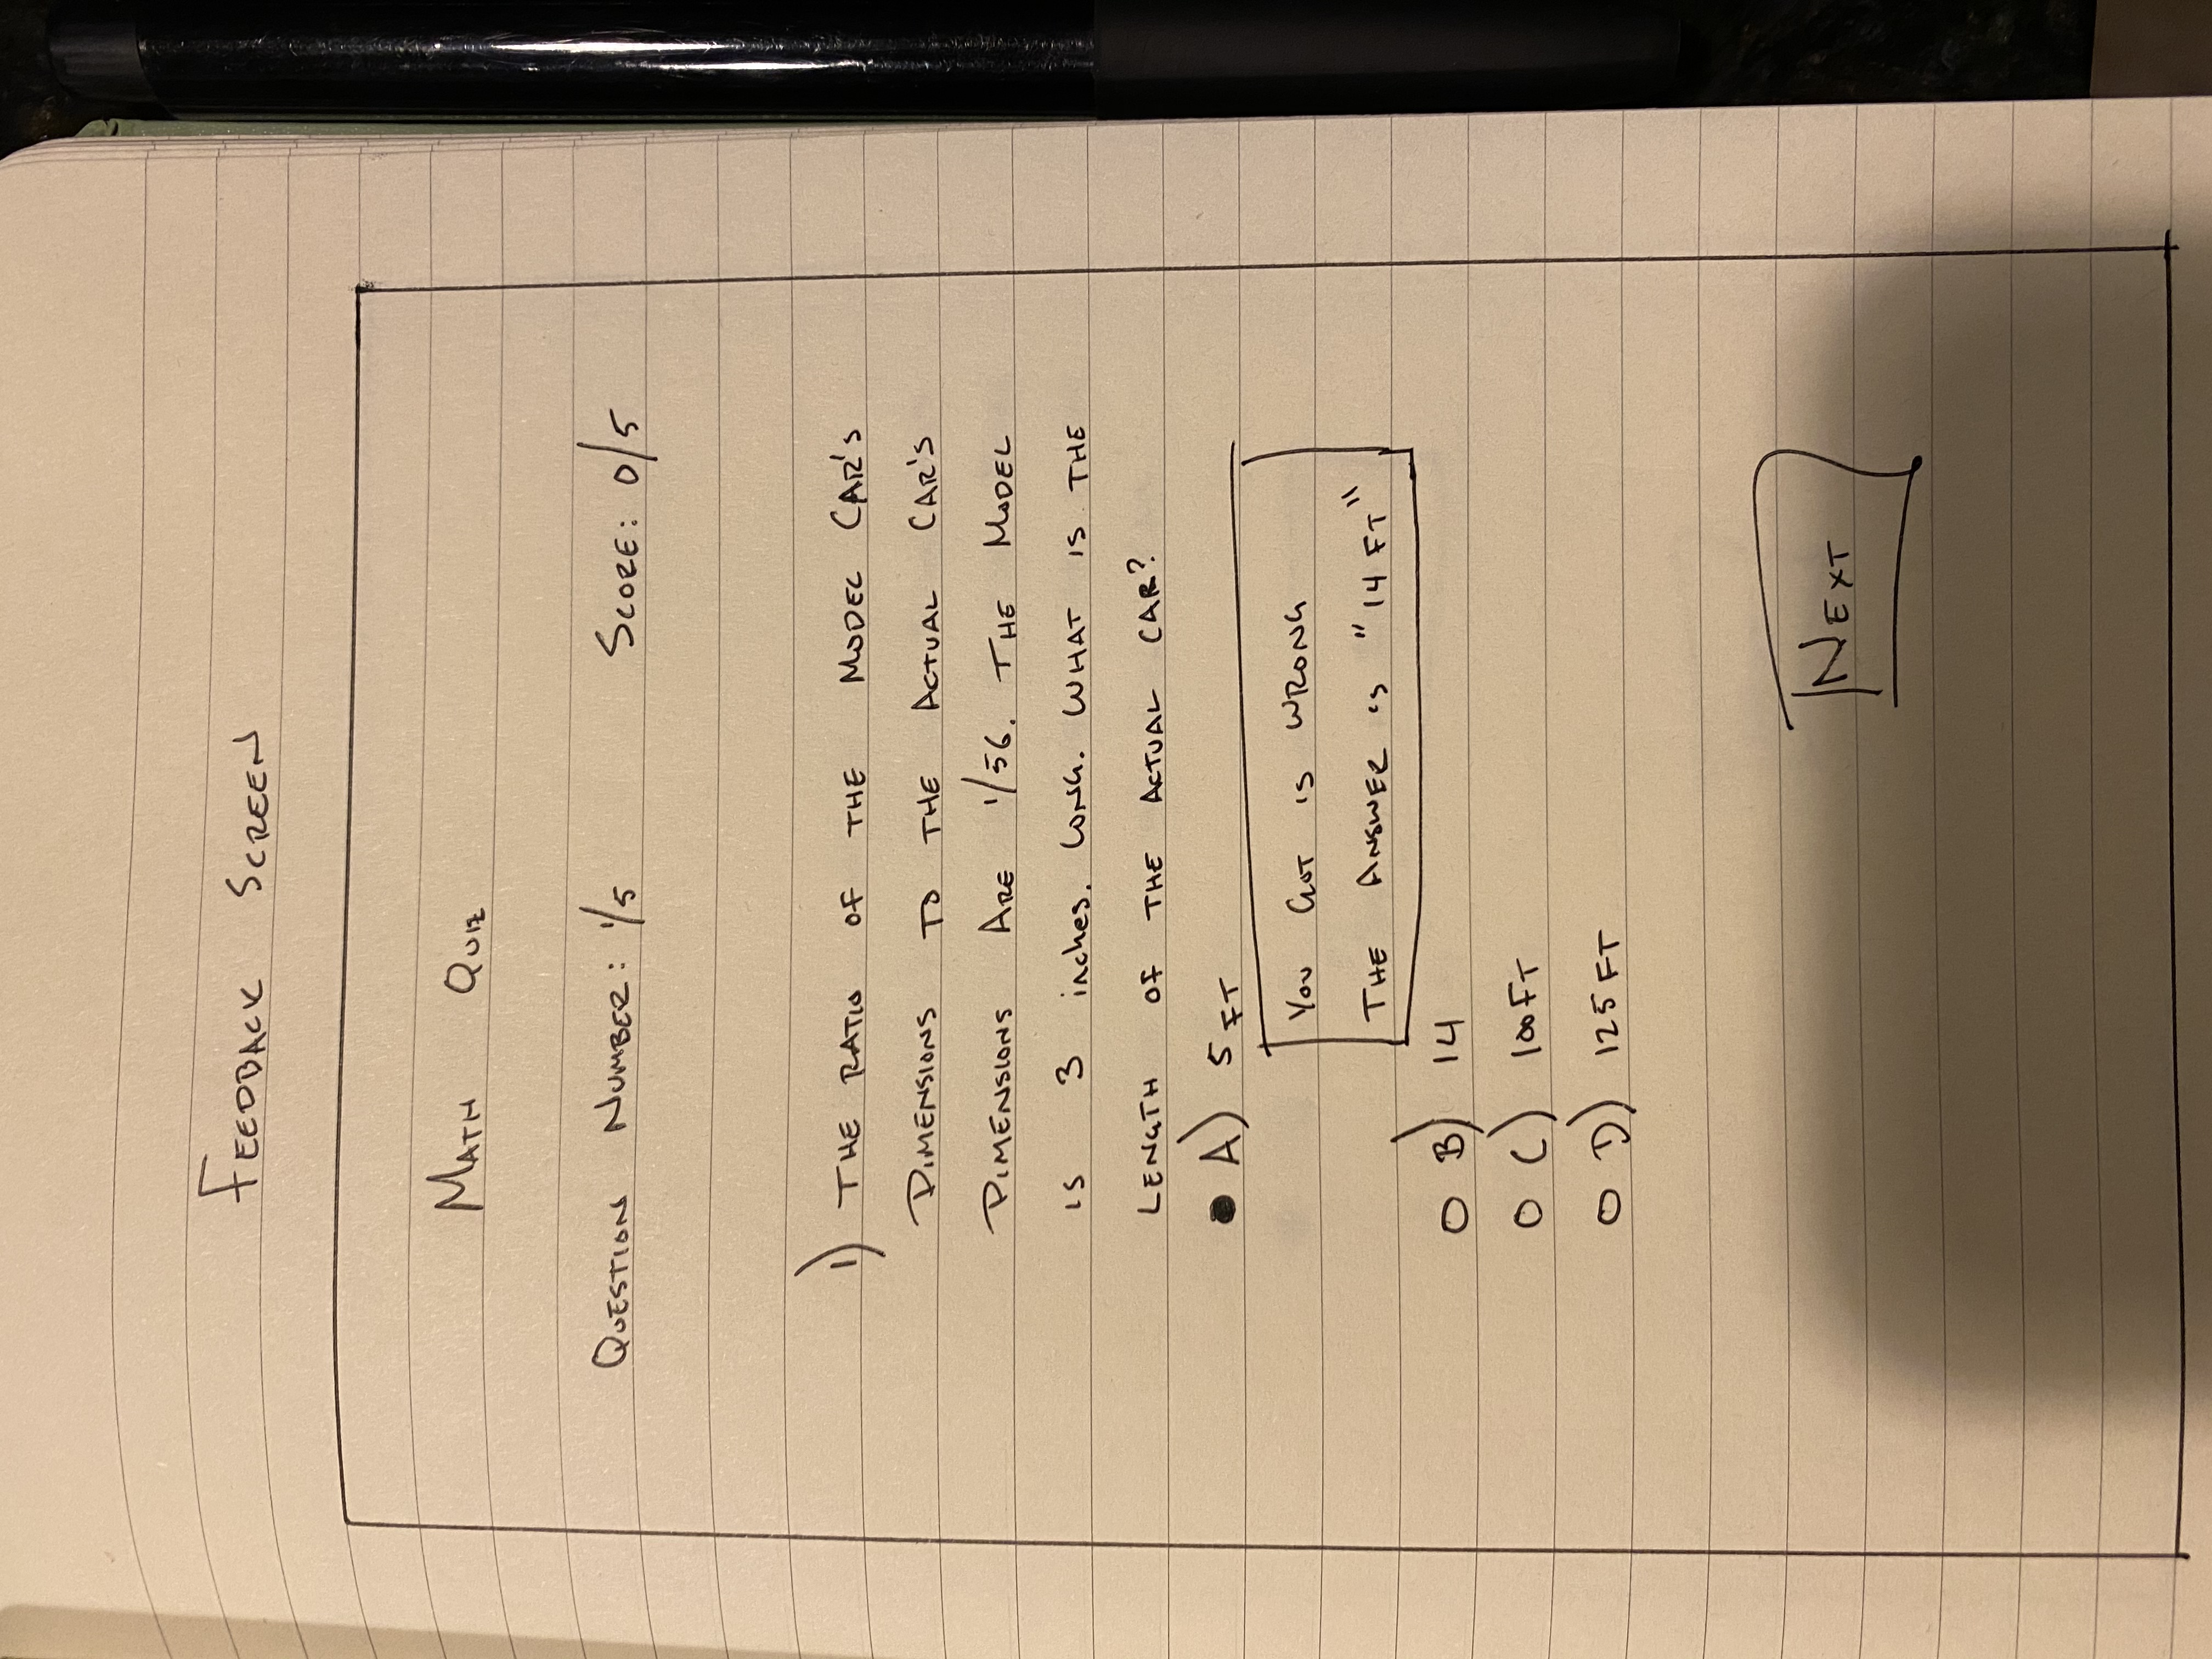 FEEDBACK SCREEN
MATH QUIZ
QUESTION NUMBER: 1/5 SCORE: 0/5
1) THE RATIO OF THE MODEL CAR'S
DIMENSIONS TO THE ACTUAL CAR'S
DIMENSIONS ARE 1/56. THE MODEL
IS 3 inches. LONG. WHAT IS THE
LENGTH OF THE ACTUAL CAR?
A) 5 FT
YOU GOT IS WRONG
THE ANSWER IS "14 FT"
B) 14
C) 100 FT
D) 125 FT
NEXT